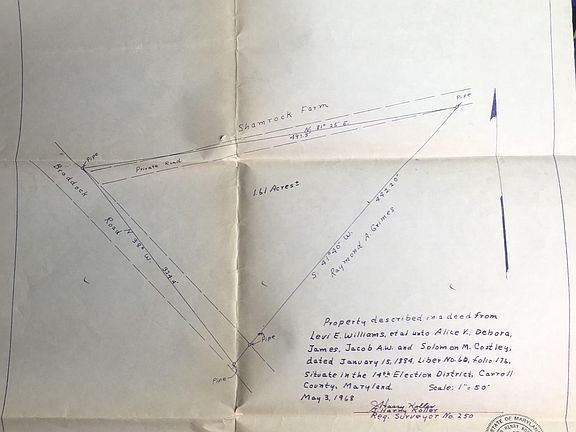 Shamrock Farm
Pipe
N. 81° 25' E.
Pipe
Private Road
Braddock
Road
1.61 Acres±
N 38° W.
S. 41° 40' W.
442.20'
Raymond A. Grimes
Pipe
Pipe
Property described in a deed from
Levi E. Williams, et al unto Alice V., Debora,
James, Jacob A.W. and Solomon M. Costley,
dated January 15, 1884, Liber No. 60, folio 176.
Situate in the 14th Election District, Carroll
County, Maryland. Scale: 1" = 50'
May 3, 1968
J. Harry Koller
J. Harry Koller
Reg. Surveyor No. 250
STATE OF MARYLAND